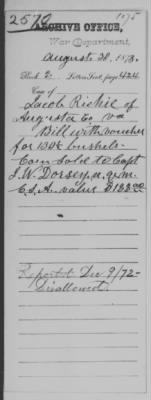 2579
1075
ARCHIVE OFFICE,
War Department,
August 28, 1873.
Book 2. Letters Sent, page 424
Copy of
Jacob Richie of
Augusta Co Va
Bill with voucher
for bushels
Corn Sold to Capt
J. W. Dorsey a.q.m.
C.S.A. value
Report Dec 9/72
Disallowed.